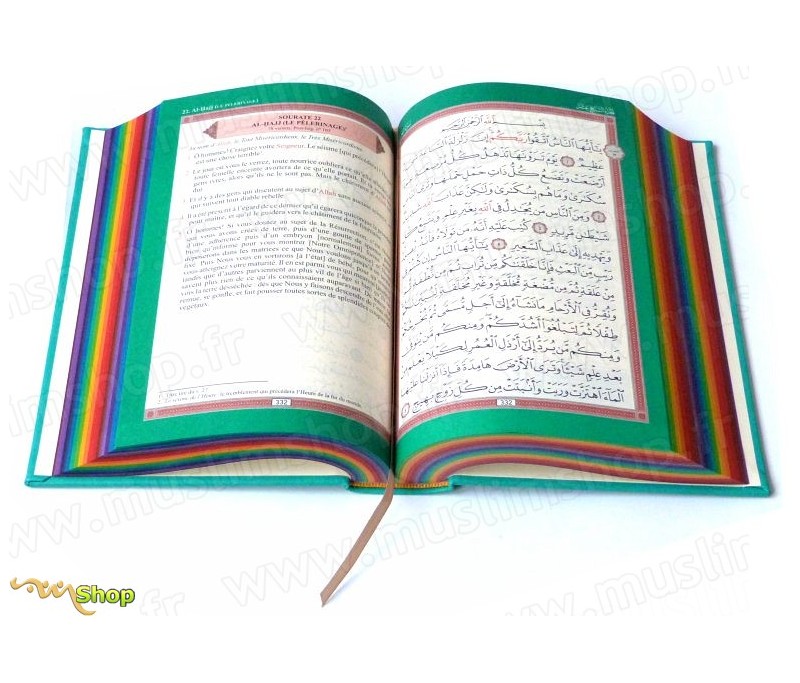 22. Al-Hajj (LE PÈLERINAGE)
SOURATE 22
AL-HAJJ (LE PÈLERINAGE)
Au nom d'Allah, le Tout Miséricordieux, le Très Miséricordieux
1. Ô hommes! Craignez votre Seigneur. Le séisme [qui précédera]
est une chose terrible
2. Le jour où vous le verrez, toute nourrice oubliera ce qu'elle
toute femelle enceinte avortera de ce qu'elle portait. Et tu
gens ivres, alors qu'ils ne le sont pas. Mais le châtiment d'
dur.
3. Et il y a des gens qui discutent au sujet d'Allah sans aucune
qui suivent tout diable rebelle.
4. Il a été prescrit à l'égard de ce dernier qu'il égarera quiconque
pour maître, et qu'il le guidera vers le châtiment de la fournaise
Ô hommes! Si vous doutez au sujet de la Résurrection,
que vous avons créés de terre, puis d'une goutte de
d'une adhérence puis d'un embryon [normalement]
bien qu'informe pour vous montrer [Notre Omnipotence]
déposerons dans les matrices ce que Nous voulons
fixé. Puis Nous vous en sortirons [à l'état] de bébé, pour
vous atteignez votre maturité. Il en est parmi vous qui
tandis que d'autres parviennent au plus vil de l'âge si bien
savent plus rien de ce qu'ils connaissaient auparavant. De
vois la terre desséchée : dès que Nous y faisons descendre
remue, se gonfle, et fait pousser toutes sortes de splendides
végétaux.
332
بِسْمِ اللَّهِ الرَّحْمَٰنِ الرَّحِيمِ
يَا أَيُّهَا النَّاسُ اتَّقُوا رَبَّكُمْ إِنَّ
عَظِيمٌ ١ يَوْمَ تَرَوْنَهَا تَذْهَلُ كُلُّ
أَرْضَعَتْ وَتَضَعُ كُلُّ ذَاتِ حَمْلٍ حَمْلَهَا
سُكَارَىٰ وَمَا هُم بِسُكَارَىٰ وَلَٰكِنَّ عَذَابَ
٢ وَمِنَ النَّاسِ مَن يُجَادِلُ فِي اللَّهِ بِغَيْرِ عِلْمٍ وَيَتَّبِعُ
شَيْطَانٍ مَّرِيدٍ ٣ كُتِبَ عَلَيْهِ أَنَّهُ مَن تَوَلَّاهُ
وَيَهْدِيهِ إِلَىٰ عَذَابِ السَّعِيرِ ٤ يَا أَيُّهَا النَّاسُ إِن
رَيْبٍ مِّنَ الْبَعْثِ فَإِنَّا خَلَقْنَاكُم مِّن تُرَابٍ ثُمَّ مِن
مِنْ عَلَقَةٍ ثُمَّ مِن مُّضْغَةٍ مُّخَلَّقَةٍ وَغَيْرِ مُخَلَّقَةٍ
وَنُقِرُّ فِي الْأَرْحَامِ مَا نَشَاءُ إِلَىٰ أَجَلٍ مُّسَمًّى ثُمَّ
طِفْلًا ثُمَّ لِتَبْلُغُوا أَشُدَّكُمْ وَمِنكُم مَّن
وَمِنكُم مَّن يُرَدُّ إِلَىٰ أَرْذَلِ الْعُمُرِ لِكَيْلَا يَعْلَمَ مِن
بَعْدِ عِلْمٍ شَيْئًا وَتَرَى الْأَرْضَ هَامِدَةً فَإِذَا أَنزَلْنَا عَلَيْهَا
الْمَاءَ اهْتَزَّتْ وَرَبَتْ وَأَنبَتَتْ مِن كُلِّ زَوْجٍ بَهِيجٍ ٥
332
www.muslimshop.fr
Shop